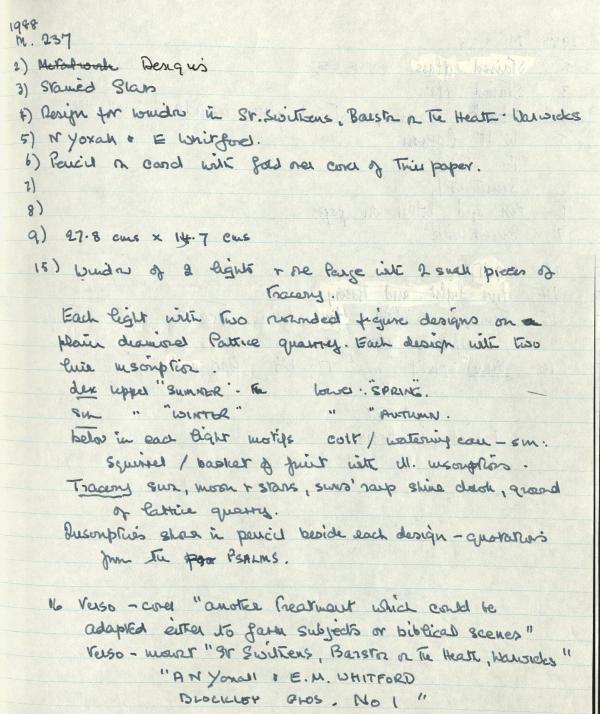 1988
M. 237
2) Metalwork Designs
3) Stained Glass
4) Design for window in St. Swithens, Barston on The Heath - Warwicks
5) N Yoxall & E Whitford.
6) Pencil on card with fold over cover of Thin paper.
7)
8)
9) 27.8 cms x 14.7 cms
15) Window of 2 lights + one large with 2 small pieces of
Tracery.
Each light with two rounded figure designs on
plain diamond lattice quarry. Each design with two
line inscription
dex upper "SUMMER" - lower: "SPRING".
Sin " "WINTER" " "AUTUMN.
below in each light motifs colt / watering can - sin:
Squirrel / basket of fruit with ill. inscriptions.
Tracery Sun, moon + stars, suns' rays shine down, ground
of lattice quarry.
Inscriptions shown in pencil beside each design - quotations
from the PSALMS.
16 Verso - cover "another Treatment which could be
adapted either to farm subjects or biblical scenes"
Verso - mount "St Swithens, Barston on The Heath, Warwicks"
"A N Yoxall & E.M. WHITFORD
BLOCKLEY GLOS. No 1 "